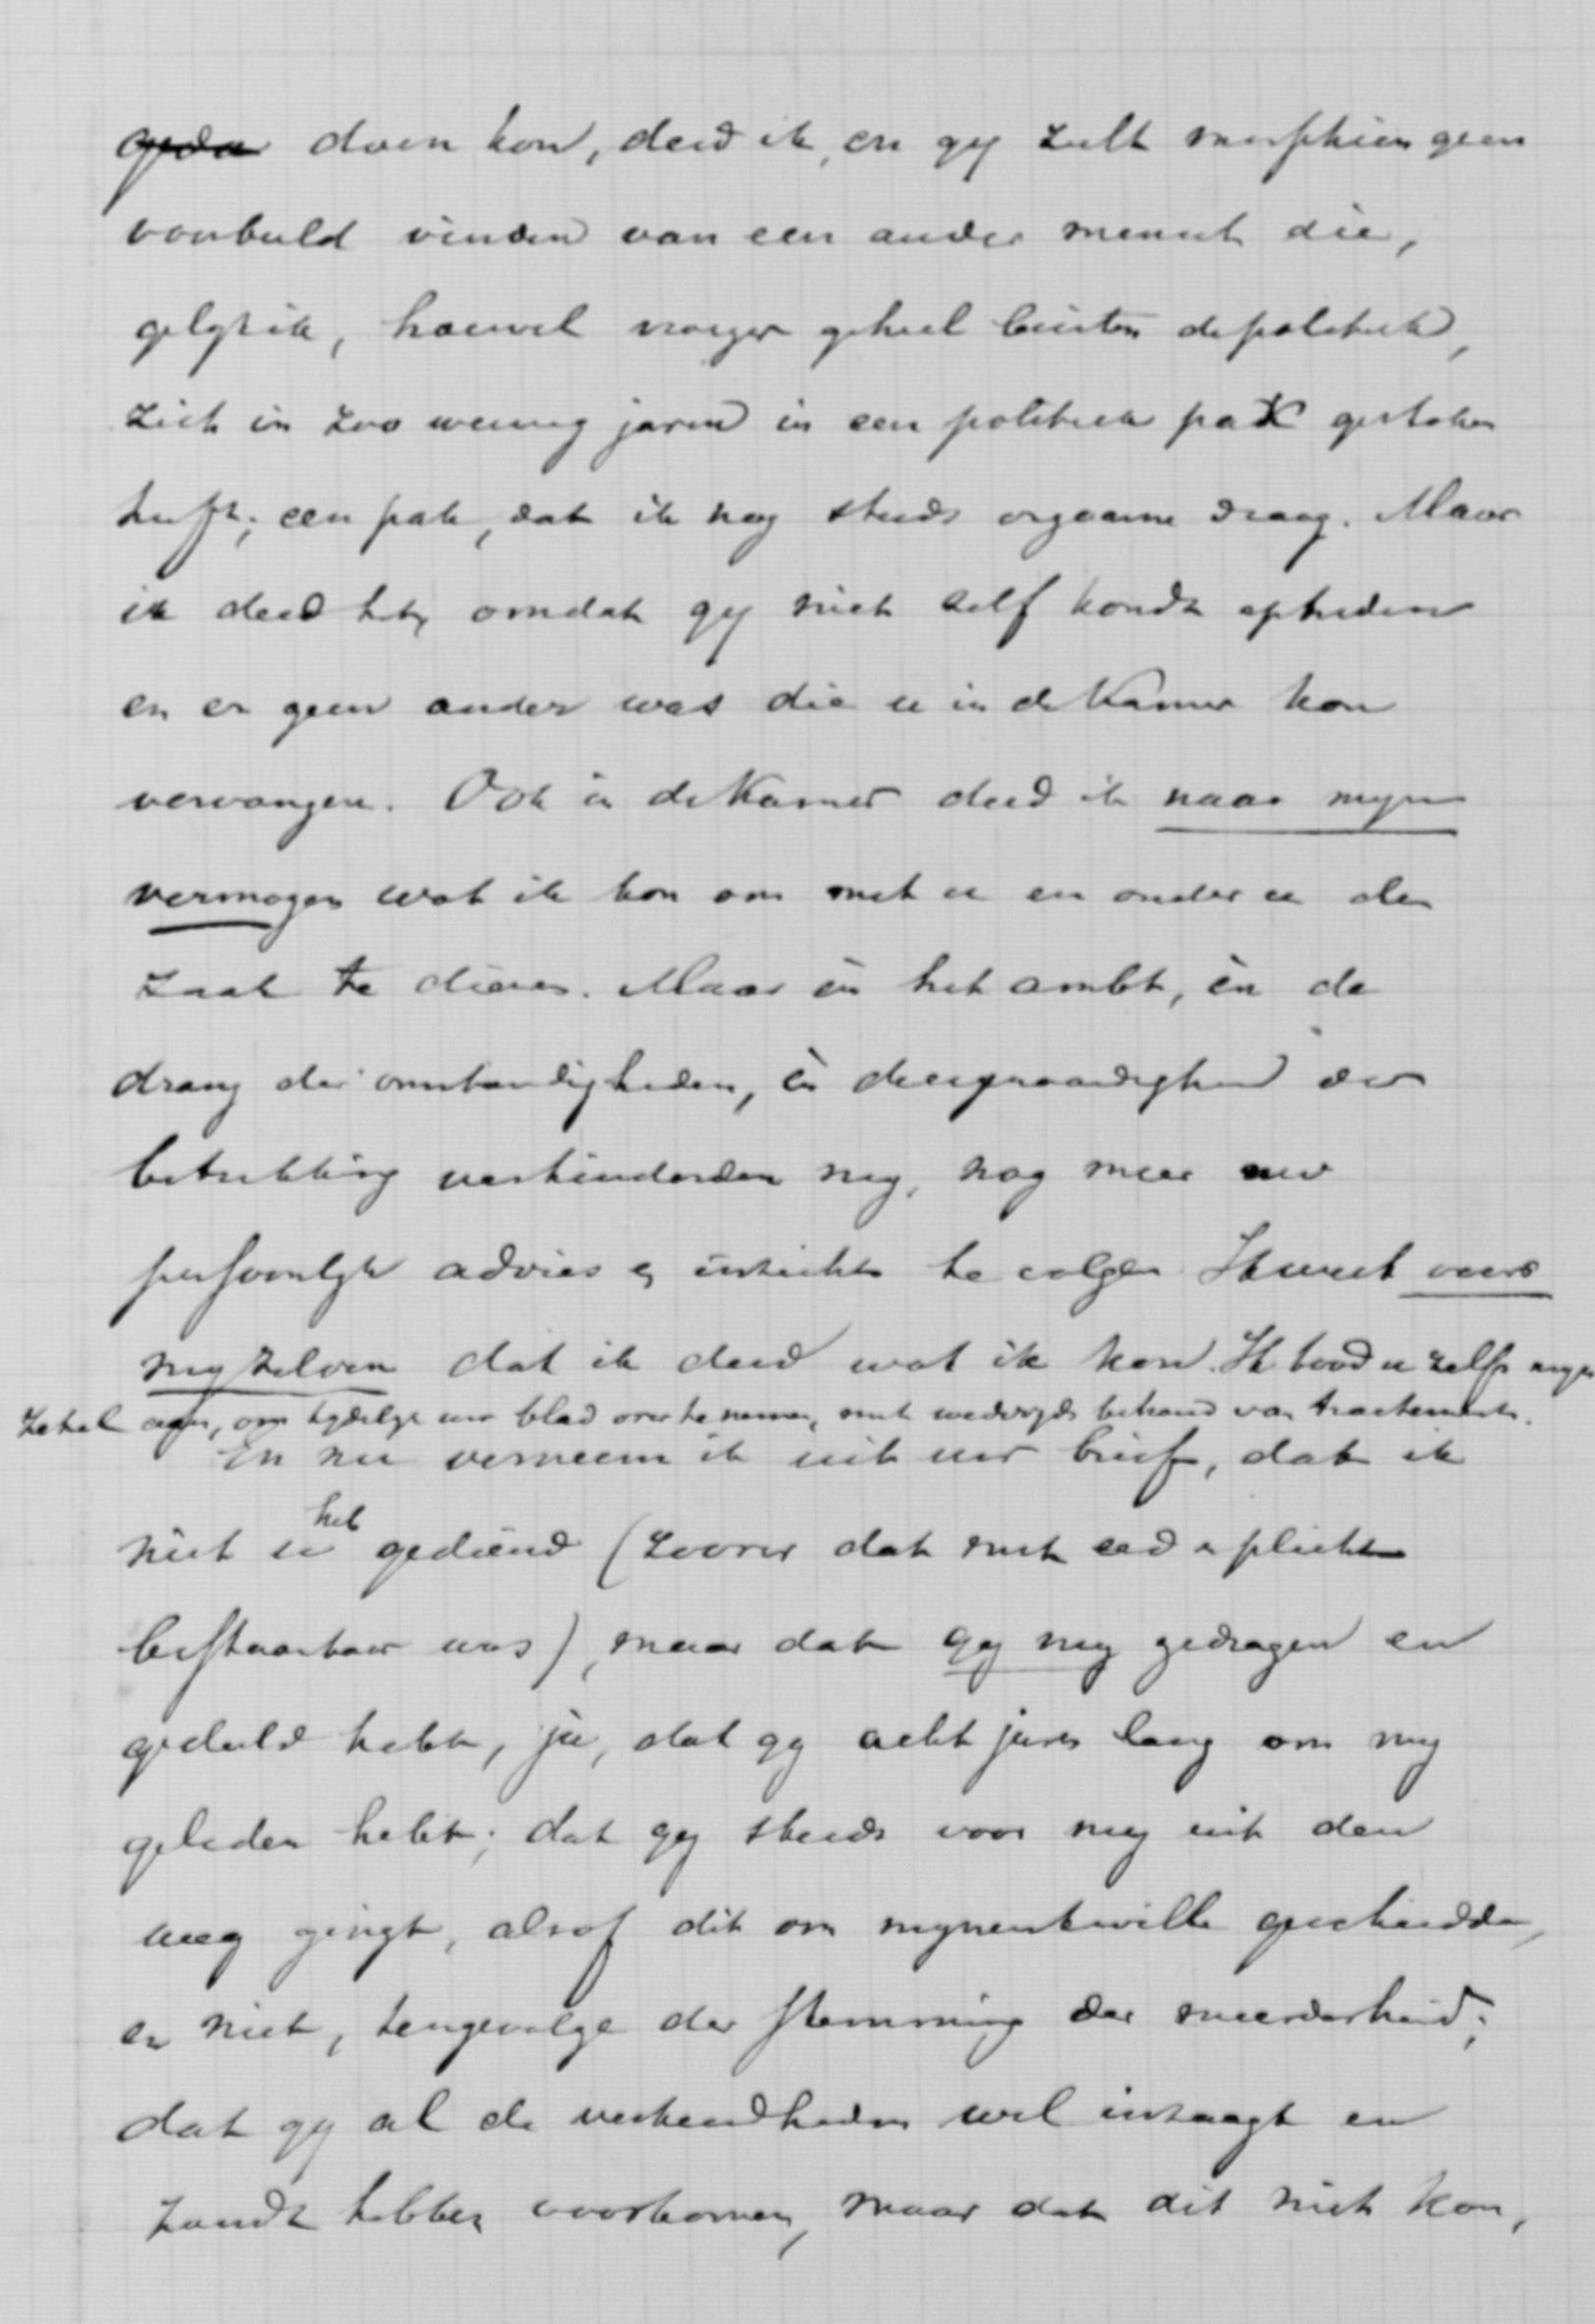 doen kon, deed ik, en gij zult misschien geen
voorbeeld vinden van een ander mensch die,
gelijk ik, hoewel vroeger geheel buiten de politiek,
zich in zoo weinig jaren in een politiek pak gestoken
heeft; een pak, dat ik nog steeds ongaarne draag. Maar
ik deed het, omdat gij niet zelf kondt optreden
en er geen ander was die u in de Kamer kon
vervangen. Ook in de Kamer deed ik naar mijn
vermogen wat ik kon om met u en onder u de
zaak te dienen. Maar èn het ambt, èn de
drang der omstandigheden, èn de eigenaardigheid der
betrekking verhinderden mij, nog meer uw
persoonlijk advies en inzicht te volgen. Ik weet voor
mij zelven dat ik deed wat ik kon. Ik bood u zelfs mijn
zetel aan, om tijdelijk uw blad over te nemen, met wederzijds behoud van tractement.
En nu verneem ik uit uw brief, dat ik
niet u heb gediend (zoover dat met eed en plicht
bestaanbaar was), maar dat gij mij gedragen en
geduld hebt, ja, dat gij acht jaren lang om mij
geleden hebt; dat gij steeds voor mij uit den
weg gingt, alsof dit om mijnentwille geschiedde,
en niet, tengevolge der stemming der meerderheid;
dat gij al de verkeerdheden wel inzaagt en
zoudt hebben voorkomen, maar dat dit niet kon,